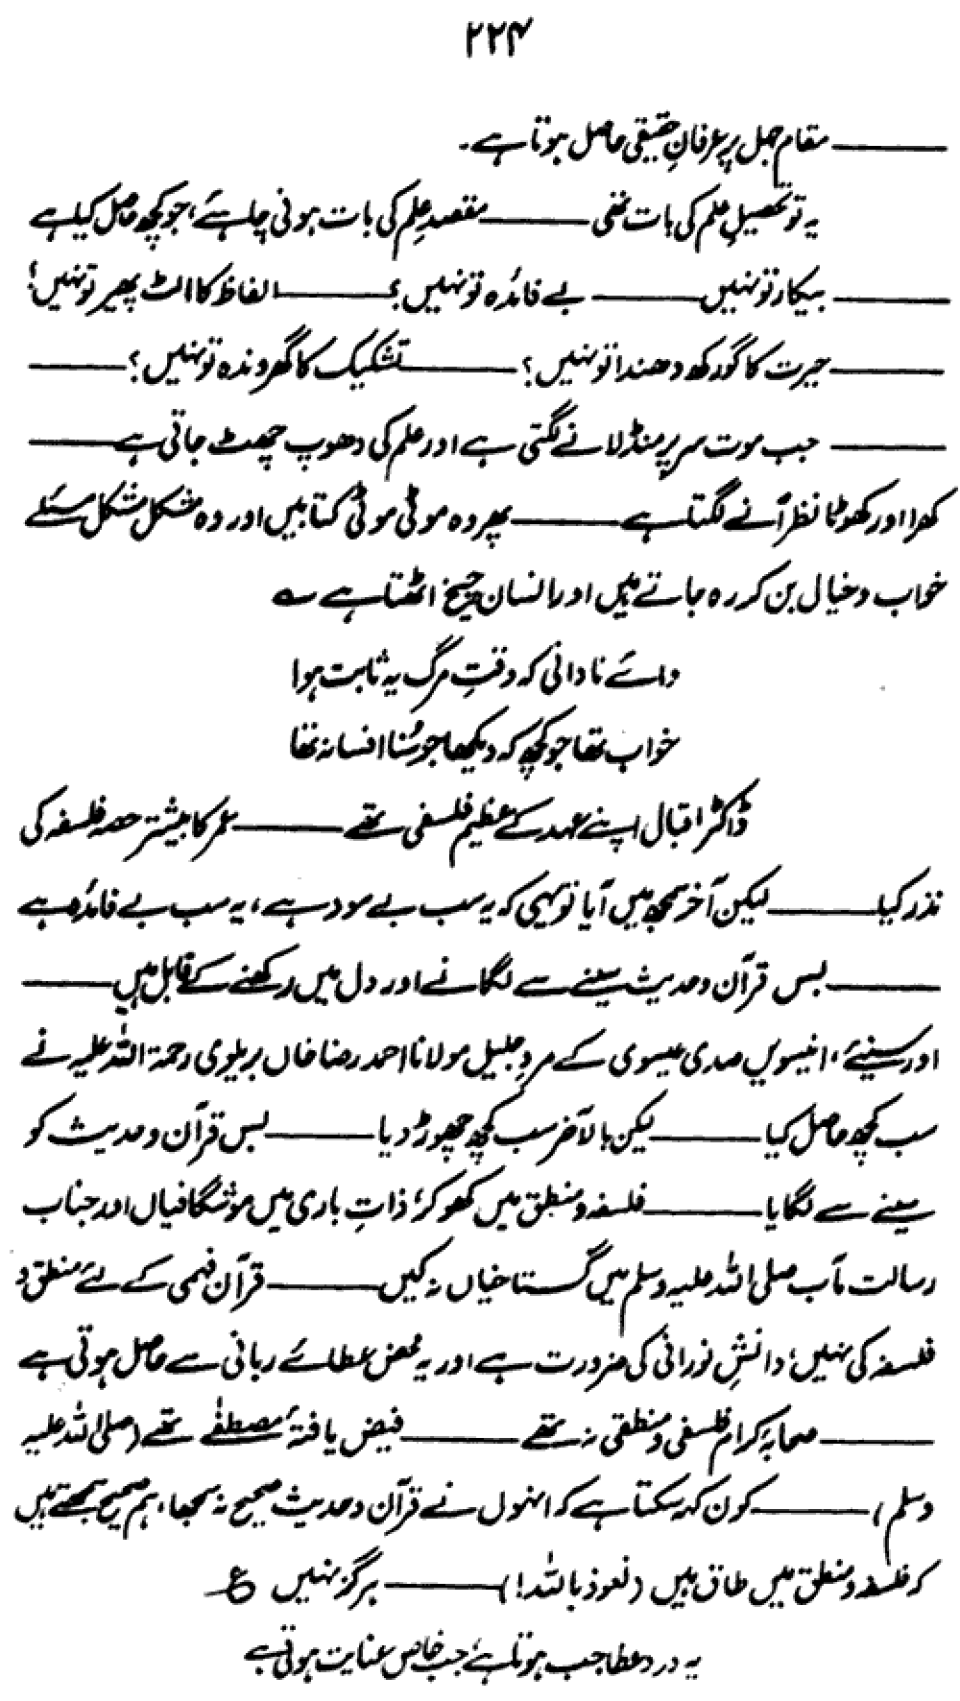 ۲۲۴
——— مقامِ جہل پر عرفانِ حقیقی حاصل ہوتا ہے۔
یہ تو تحصیلِ علم کی بات تھی ——— مقصدِ علم کی بات ہونی چاہئے، جو کچھ حاصل کیا ہے
——— بیکار تو نہیں ——— بے فائدہ تو نہیں؟ ——— الفاظ کا الٹ پھیر تو نہیں؟
——— حیرت کا گورکھ دھندا تو نہیں؟ ——— تشکیک کا گھروندہ تو نہیں؟ ———
——— جب موت سر پر منڈلانے لگتی ہے اور علم کی دھوپ چھٹ جاتی ہے ———
کھرا اور کھوٹا نظر آنے لگتا ہے ——— پھر وہ موٹی موٹی کتابیں اور وہ مشکل مشکل مسئلے
خواب و خیال بن کر رہ جاتے ہیں اور انسان چیخ اٹھتا ہے ؎
وائے نادانی کہ وقتِ مرگ یہ ثابت ہوا
خواب تھا جو کچھ کہ دیکھا جو سُنا افسانہ تھا
ڈاکٹر اقبال اپنے عہد کے عظیم فلسفی تھے ——— عمر کا بیشتر حصہ فلسفہ کی
نذر کیا ——— لیکن آخر سمجھ میں آیا تو یہی کہ یہ سب بے سود ہے، یہ سب بے فائدہ ہے
——— بس قرآن و حدیث سینے سے لگانے اور دل میں رکھنے کے قابل ہیں ———
اور سنیئے، انیسویں صدی عیسوی کے مردِ جلیل مولانا احمد رضا خاں بریلوی رحمۃ اللہ علیہ نے
سب کچھ حاصل کیا ——— لیکن بالآخر سب کچھ چھوڑ دیا ——— بس قرآن و حدیث کو
سینے سے لگایا ——— فلسفہ و منطق میں کھو کر، ذاتِ باری میں موشگافیاں اور جناب
رسالت مآب صلی اللہ علیہ وسلم میں گستاخیاں نہ کیں ——— قرآن فہمی کے لئے منطق و
فلسفہ کی نہیں، دانشِ نورانی کی ضرورت ہے اور یہ محض عطائے ربانی سے حاصل ہوتی ہے
——— صحابہ کرام فلسفی و منطقی نہ تھے ——— فیض یافتۂ مصطفےٰ تھے (صلی اللہ علیہ
وسلم) ——— کون کہہ سکتا ہے کہ انہوں نے قرآن و حدیث صحیح نہ سمجھا، ہم صحیح سمجھتے ہیں
کہ فلسفہ و منطق میں طاق ہیں (نعوذ باللہ!) ——— ہرگز نہیں ؏
یہ درد عطا جب ہوتا ہے، جب خاص عنایت ہوتی ہے